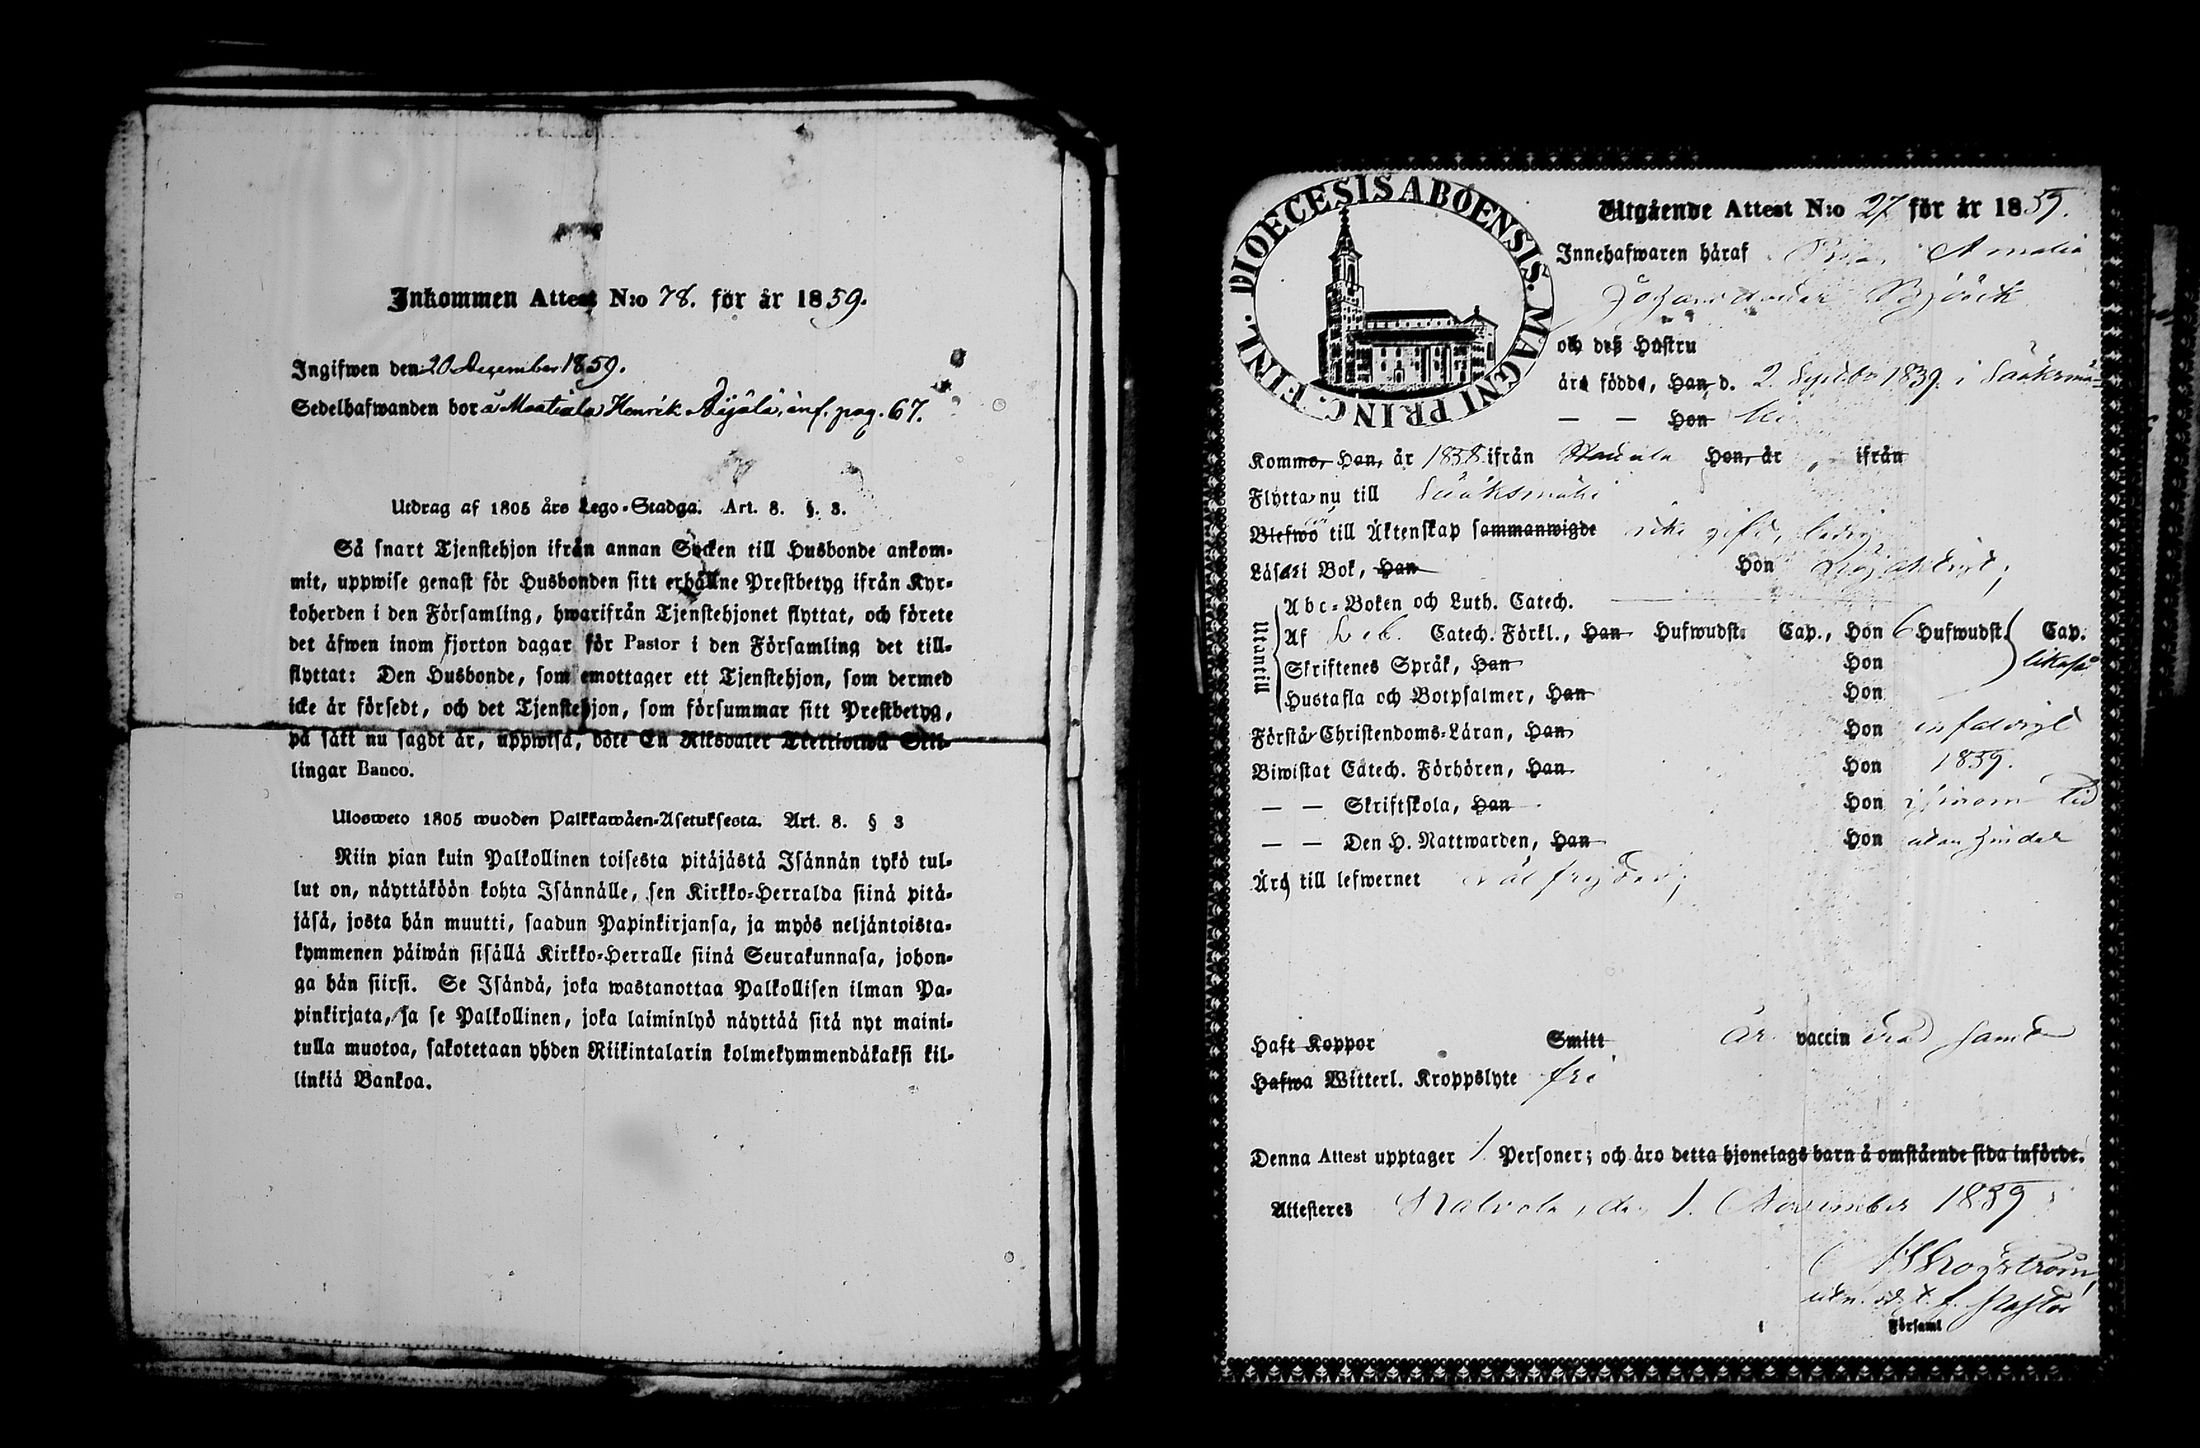 Inkommen Attest N:o 78. för år 1859.
Ingifwen den 20 December 1859.
Sedelhafwanden bor å Maatiala Henrik Äijälä, inf. pag. 67.
Utdrag af 1805 års Lego-Stadga. Art. 8. §. 3.
Så snart Tjenstehjon ifrån annan Socken till Husbonde ankom-
mit, uppwise genast för Husbonden sitt erhållne Prestbetyg ifrån Kyr-
koherden i den Församling, hwarifrån Tjenstehjonet flyttat, och förete
det äfwen inom fjorton dagar för Pastor i den Församling det till-
flyttat: Den Husbonde, som emottager ett Tjenstehjon, som dermed
icke är försedt, och det Tjenstehjon, som försummar sitt Prestbetyg,
på sätt nu sagdt är, uppwisa, böte En Riksdaler Trettiotwå Skil-
lingar Banco.
Ulosweto 1805 wuoden Palkkawäen-Asetuksesta. Art. 8. § 3
Niin pian kuin Palkollinen toisesta pitäjästä Isännän tykö tul-
lut on, näyttäköön kohta Isännälle, sen Kirkko-Herralda siinä pitä-
jäsä, josta hän muutti, saadun Papinkirjansa, ja myös neljäntoista-
kymmenen päiwän sisällä Kirkko-Herralle siinä Seurakunnasa, johon-
ga hän siirsi. Se Isändä, joka wastanottaa Palkollisen ilman Pa-
pinkirjata, ja se Palkollinen, joka laiminlyö näyttää sitä nyt maini-
tulla muotoa, sakotetaan yhden Riikintalarin kolmekymmendäkaksi kil-
linkiä Bankoa.
DIOECESIS ABOENSIS. MAGNI PRINC. FINL.
Utgående Attest N:o 27 för år 1859.
Innehafwaren häraf Pigan Amalia
Johansdotter Björck
och deß Hustru
äro födde, Han d. 2 Septbr 1839. i Sääksmä-
— — Hon ki
Komme, Han, år 1858 ifrån Hon, år ifrån
Flytta nu till Sääksmäki
Blefwo till Äktenskap sammanwigde icke gift, ledig
Läsa i Bok, Han Hon
Utantill
Abc-Boken och Luth. Catech.
Af Catech. Förkl., Han Hufwudst. Cap., Hon 6 Hufwudst. Cap.
Skriftenes Språk, Han Hon likaså
Hustafla och Botpsalmer, Han Hon
Förstå Christendoms-Läran, Han Hon enfaldigt
Biwistat Catech. Förhören, Han Hon 1859.
— — Skriftskola, Han Hon i sinom tid
— — Den H. Nattwarden, Han Hon utan hinder
Äro till lefwernet väl frejdad;
Haft Koppor Smitt Är vaccinerad samt
Hafwa Witterl. Kroppslyte fri
Denna Attest upptager 1 Personer; och äro detta hjonelags barn å omstående sida införde.
Attesteres Kalvola, den 1. November 1859
Pastor
i Församl